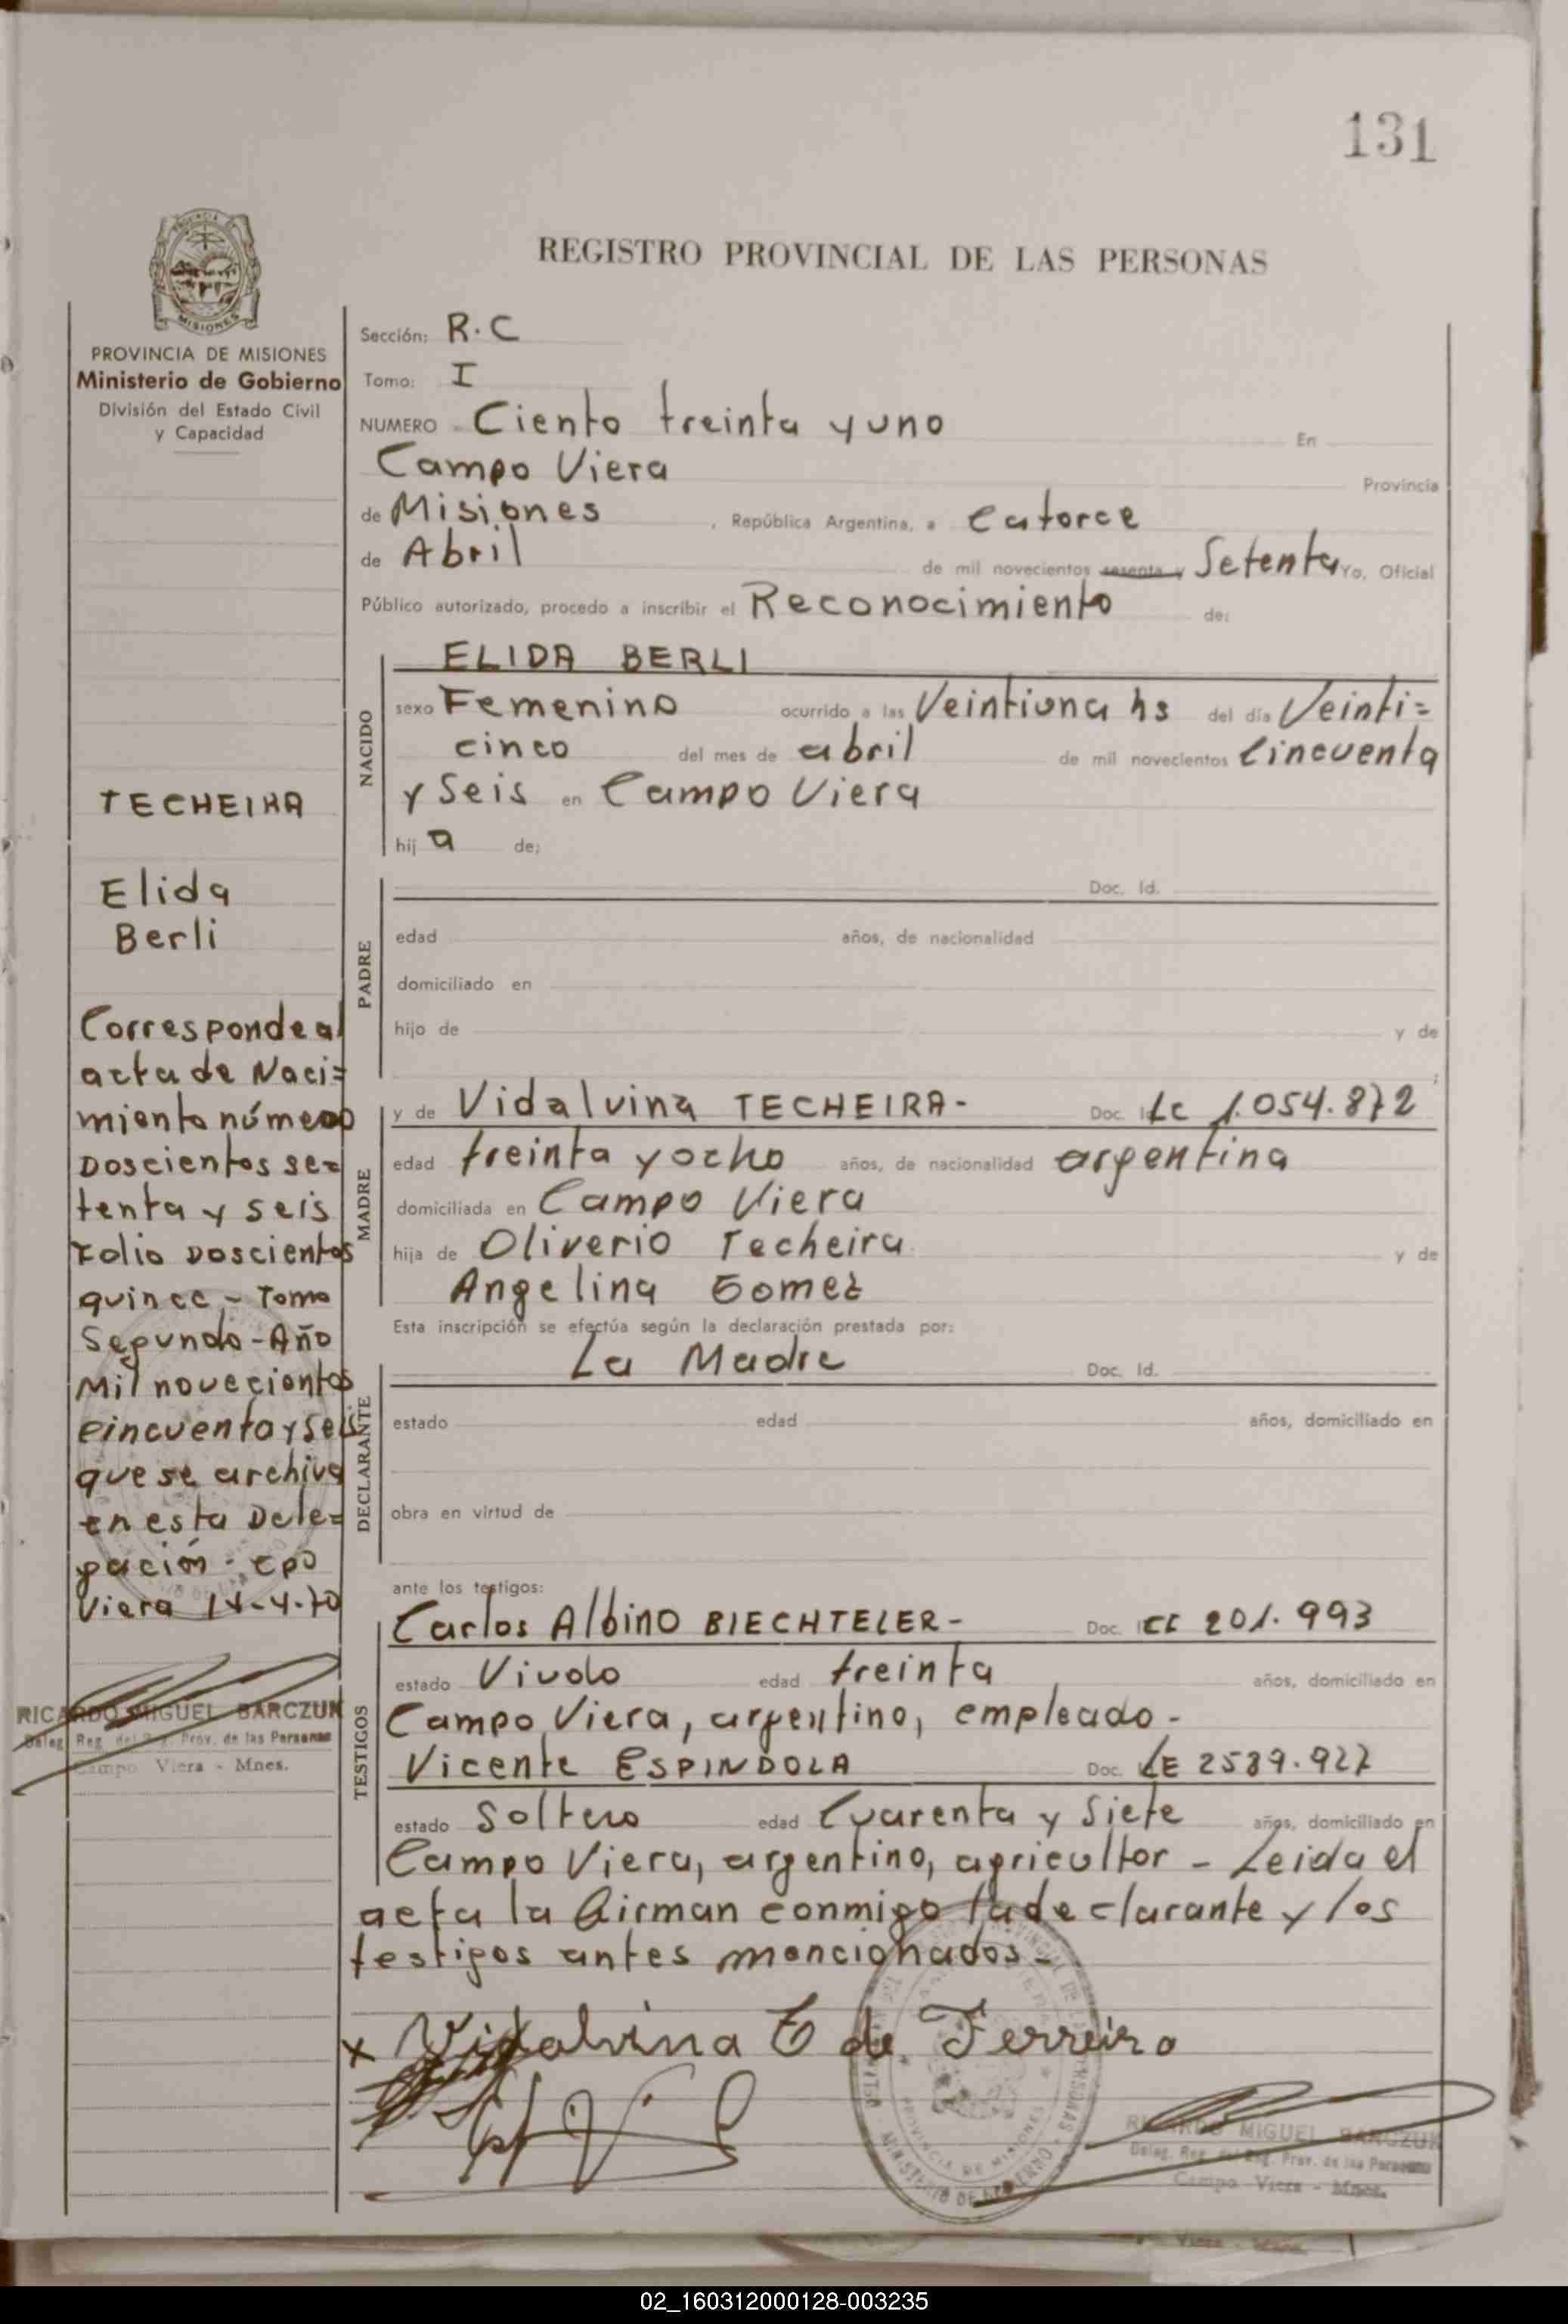 131
REGISTRO PROVINCIAL DE LAS PERSONAS
PROVINCIA
MISIONES
PROVINCIA DE MISIONES
Ministerio de Gobierno
División del Estado Civil
y Capacidad
Sección: R.C
Tomo: I
NUMERO Ciento treinta y uno En
Campo Viera Provincia
de Misiones, República Argentina, a Catorce
de Abril de mil novecientos sesenta y Setenta Yo, Oficial
Público autorizado, procedo a inscribir el Reconocimiento de:
NACIDO
ELIDA BERLI
sexo Femenino ocurrido a las Veintiuna hs del día Veinti=
cinco del mes de abril de mil novecientos Cincuenta
y Seis en Campo Viera
hij a de;
PADRE
Doc. Id.
edad años, de nacionalidad
domiciliado en
hijo de y de
;
MADRE
y de Vidalvina TECHEIRA- Doc. Id LC 1.054.872
edad treinta y ocho años, de nacionalidad argentina
domiciliada en Campo Viera
hija de Oliverio Techeira y de
Angelina Gomez
Esta inscripción se efectúa según la declaración prestada por:
DECLARANTE
La Madre Doc. Id.
estado edad años, domiciliado en
obra en virtud de
ante los testigos:
TESTIGOS
Carlos Albino BIECHTELER- Doc. CI 201.993
estado Viudo edad treinta años, domiciliado en
Campo Viera, argentino, empleado-
Vicente ESPINDOLA Doc. LE 2539.927
estado Soltero edad Cuarenta y Siete años, domiciliado en
Campo Viera, argentino, agricultor - Leida el
acta la firman conmigo la declarante y los
testigos antes mencionados-
x Vidalvina T de Ferreira
RICARDO MIGUEL BARCZUK
Deleg. Reg. del Reg. Prov. de las Personas
Campo Viera - Mnes.
TECHEIRA
Elida
Berli
Corresponde al
acta de Naci=
miento número
Doscientos se=
tenta y seis
Folio Doscientos
quince - Tomo
Segundo - Año
Mil novecientos
cincuenta y seis
que se archiva
en esta Dele=
gación - Cpo
Viera 14-4-70
RICARDO MIGUEL BARCZUK
Deleg. Reg. del Reg. Prov. de las Personas
Campo Viera - Mnes.
PROVINCIA DE MISIONES
MINISTERIO DE GOBIERNO
02_160312000128-003235